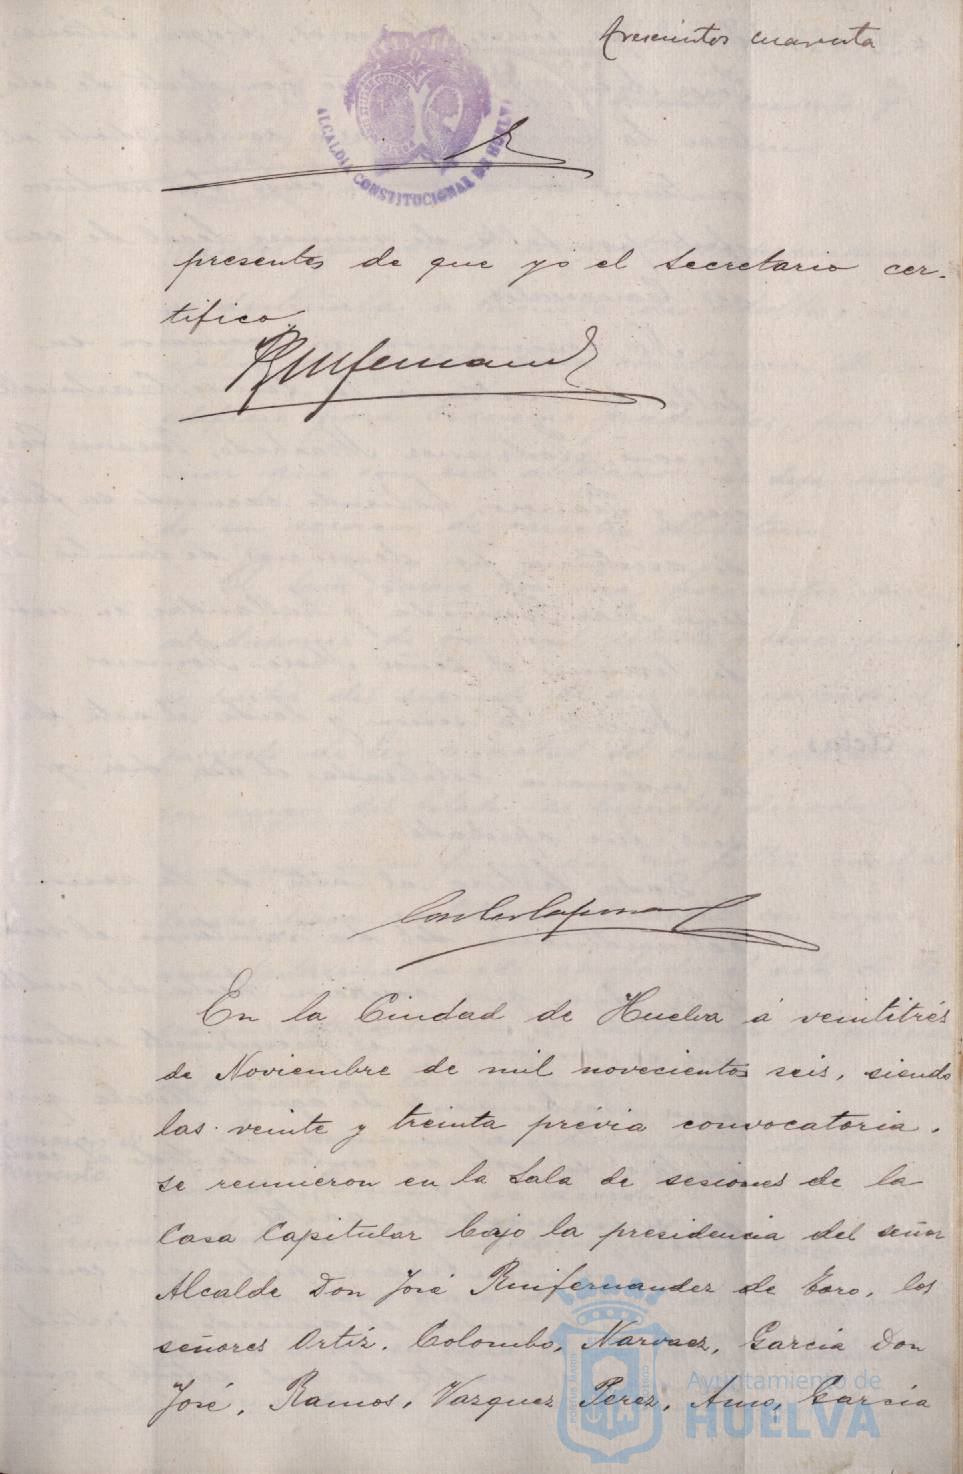 trescientos cuarenta
ALCALDIA CONSTITUCIONAL DE HUELVA
presentes de que yo el Secretario cer-
tifico
Ruifernand
En la Ciudad de Huelva á veintitrés
de Noviembre de mil novecientos seis, siendo
las veinte y treinta prévia convocatoria,
se reunieron en la Sala de sesiones de la
Casa Capitular bajo la presidencia del señor
Alcalde Don José Ruifernandez de Toro, los
señores Ortiz, Colombo, Narvaez, Garcia Don
José, Ramos, Vazquez Perez, Amo, Garcia
Ayuntamiento de
HUELVA